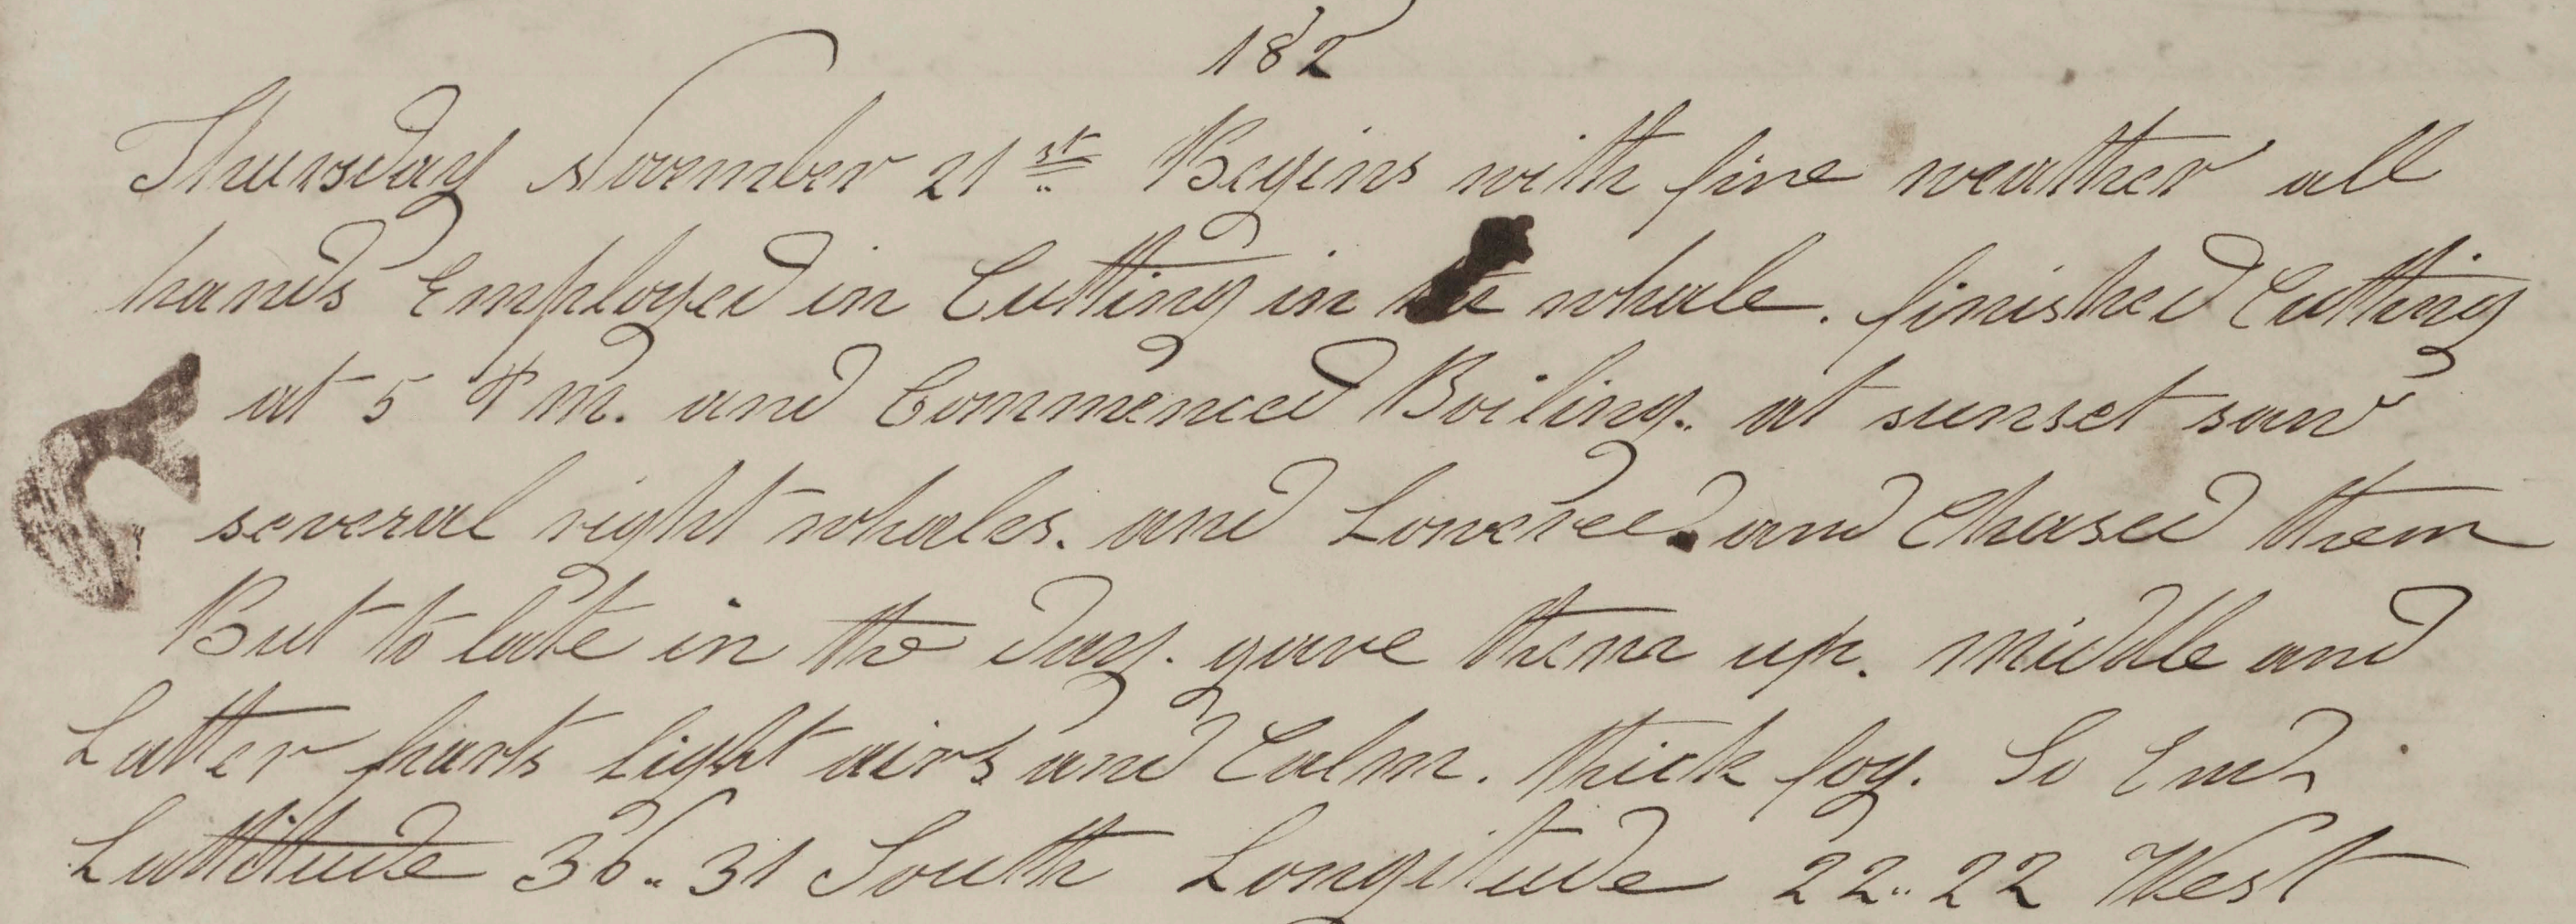 182
Thursday November 21st Begins with fine weather all
hands Employed in Cutting in the whale. finished Cutting
at 5 P m. and Commenced Boiling. at sunset saw
several right whales. and Lowered. and Chased them
But to late in the Day. gave them up. middle and
Latter parts light airs and Calm. thick fog. So End,
Lattitude 36.. 31 South Longitude 22.. 22 West